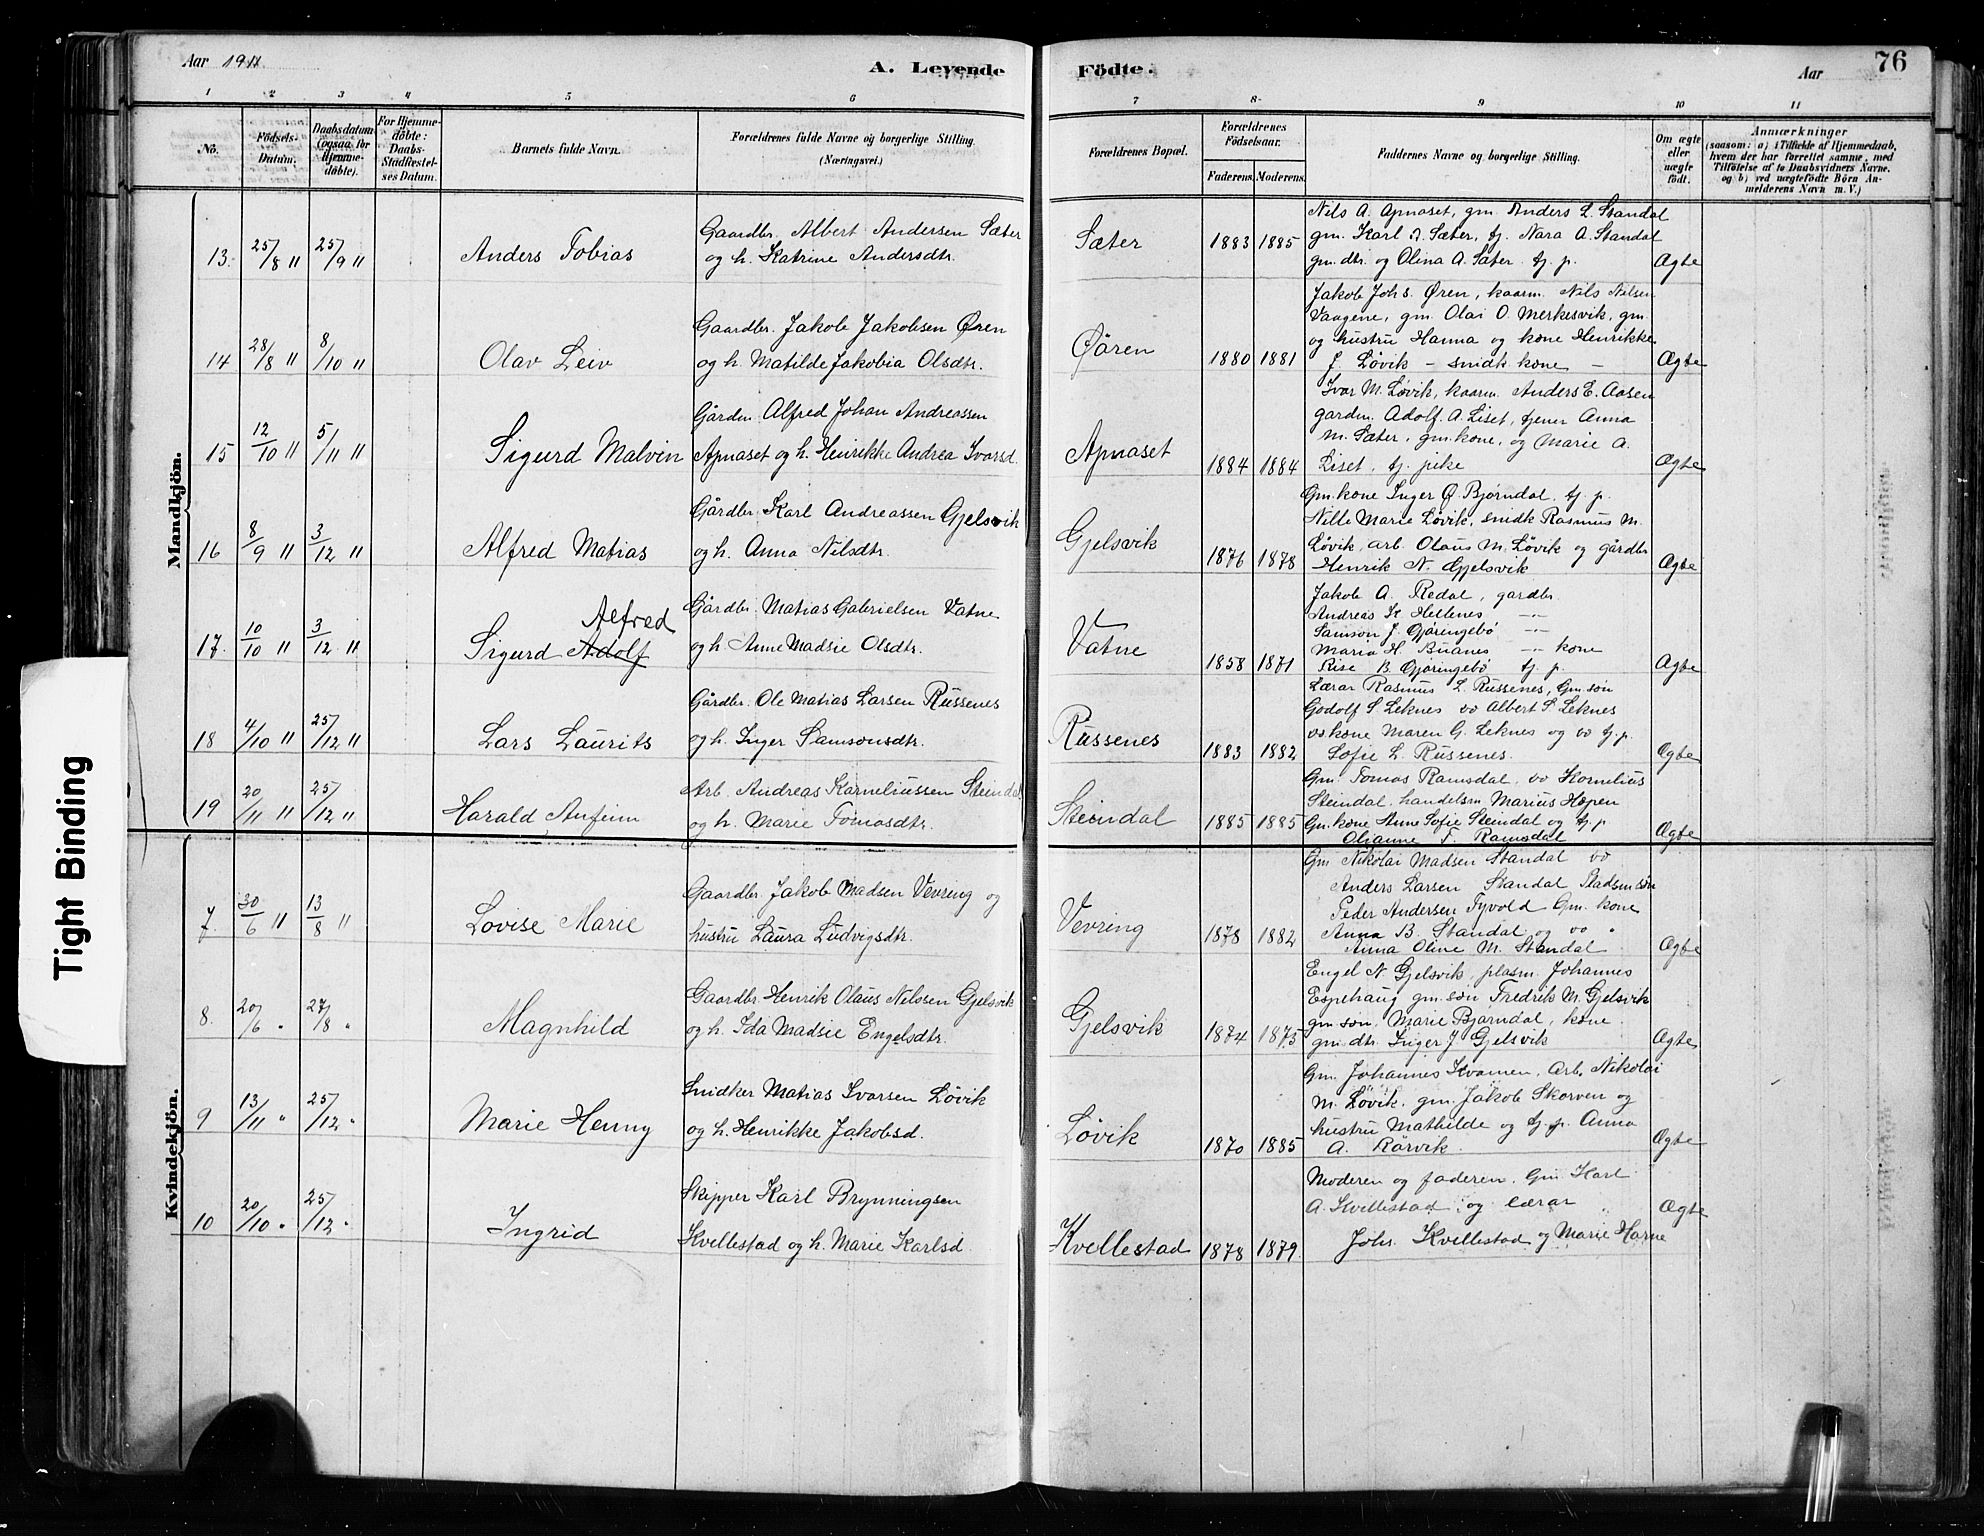 Aar 1911
A. Levende
Födte.
Aar
76
1 2 3 4 5 6 7 8 9 10 11
No.
Födsels-
Datum.
Daabsdatum
(ogsaa for
Hjemme-
döbte).
For Hjemme-
döbte:
Daabs-
Stadfæstel-
ses Datum.
Barnets fulde Navn.
Forældrenes fulde Navne og borgerlige Stilling.
(Næringsvei.)
Forældrenes Bopæl.
Forældrenes
Födselsaar.
Faderens. Moderens.
Faddernes Navne og borgerlige Stilling.
Om ægte
eller
uægte
födt.
Anmærkninger
(saasom: a) i Tilfælde af Hjemmedaab,
hvem der har forrettet samme, med
Tilföielse af to Daabsvidners Navne,
og b) ved uægtefödte Börn An-
melderens Navn m. V.)
Mandkjön.
13. 25/8 " 25/9 " Anders Tobias
Gaardbr. Albert Andersen Sæter
og h. Katrine Andersdtr.
Sæter 1883 1885
Nils A. Apnaset, gm. Anders L. Standal
gm. Karl A. Sæter, tj. Nara A. Standal
gm. dtr. og Olina A. Sæter tj. p. Ægte
14 28/8 " 8/10 " Olav Leiv
Gaardbr. Jakob Jakobsen Øren
og h. Matilde Jakobia Olsdtr.
Øören 1880 1881
Jakob Johs. Øren, kaarm. Nils Nilsen
Vaagene, gm. Olai O. Merkesvik, gm.
og hustru Hanna og kone Henrikke
J. Løvik - snidk. kone - Ægte
15 12/10 " 5/11 " Sigurd Malvin
Gårdm. Alfred Johan Andreassen
Apnaset og h. Henrikke Andrea Ivarsd.
Apnaset 1884 1884
Ivar M. Løvik, kaarm. Anders E. Aasen
gardm. Adolf A. Liset, tjener Anna
M. Sæter, gm. kone, og Marie A.
Liset, tj. pike Ægte
16 8/9 " 3/12 " Alfred Matias
Gårdbr. Karl Andreassen Gjelsvik
og h. Anna Nilsdtr.
Gjelsvik 1876 1878
Gm. kone Inger Ø. Bjørndal, tj. p.
Nille Marie Løvik, snidk Rasmus M.
Løvik, arb. Olaus M. Løvik og gårdbr
Henrik N. Gjelsvik Ægte
17. 10/10 " 3/12 " Sigurd Adolf
Alfred
Gårdbr. Matias Gabrielsen Vatne
og h. Anne Madsie Olsdtr.
Vatne 1858 1871
Jakob A. Redal, gardbr.
Andreas K. Hellenes -"-
Samson J. Gjöringebö -"-
Maria H. Buanes -"- kone
Rise B. Gjöringebö tj. p. Ægte
18 4/10 " 25/12 " Lars Laurits
Gårdbr. Ole Matias Larsen Russenes
og h. Inger Samsonsdtr.
Russenes 1883 1882
Lærar Rasmus L. Russenes, Gm. søn
Godolf S. Leknes oo Albert S. Leknes
oo kone Maren G. Leknes og oo tj. p.
Sofie L. Russenes. Ægte
19 20/11 " 25/12 " Harald Anfinn
Arb. Andreas Karneliussen Steindal
og h. Marie Tomasdtr.
Steindal 1885 1885
Gm. Tomas Ramsdal, oo Kornelius
Steindal, handelsm Marius Hopen
Gm. kone Anne Sofie Steindal og tj. p
Olianne T. Ramsdal Ægte
Kvindekjön.
7. 30/6 " 13/8 " Lovise Marie
Gaardbr Jakob Madsen Vevring og
hustru Laura Ludvigsdtr.
Vevring 1878 1882
Gm Nikolai Madsen Standal oo
Anders Larsen Standal Pladsm søn
Peder Andersen Tyvold Gm. kone
Anna B. Standal og oo "
Anna Oline M. Standal Ægte
8. 20/6 " 27/8 " Magnhild
Gaardbr Henrik Olaus Nilssen Gjelsvik
og h. Ida Madsie Engelsdtr.
Gjelsvik 1874 1875
Engel N. Gjelsvik, plasm. Johannes
Espehaug gm. søn Fredrik M. Gjelsvik
gm søn, Marie Bjørndal, kone
gm. dtr. Inger J. Gjelsvik Ægte
9 13/11 " 25/12 " Marie Henny
Snidker Matias Ivarsen Løvik
og h. Henrikke Jakobsd.
Løvik 1870 1885
Gm. Johannes Kvamen, arb. Nikolai
M. Løvik, gm. Jakob Skorven og
hustru Mathilde og tj. p. Anna
A. Rörvik. Ægte
10 20/10 " 25/12 " Ingrid
Skipper Karl Brynningsen
Kvellestad og h. Marie Karlsd.
Kvellestad 1878 1879
Moderen og faderen, Gm. Karl
A. Kvellestad og lærar
Johs. Kvellestad og Marie Horne Ægte
Tight Binding